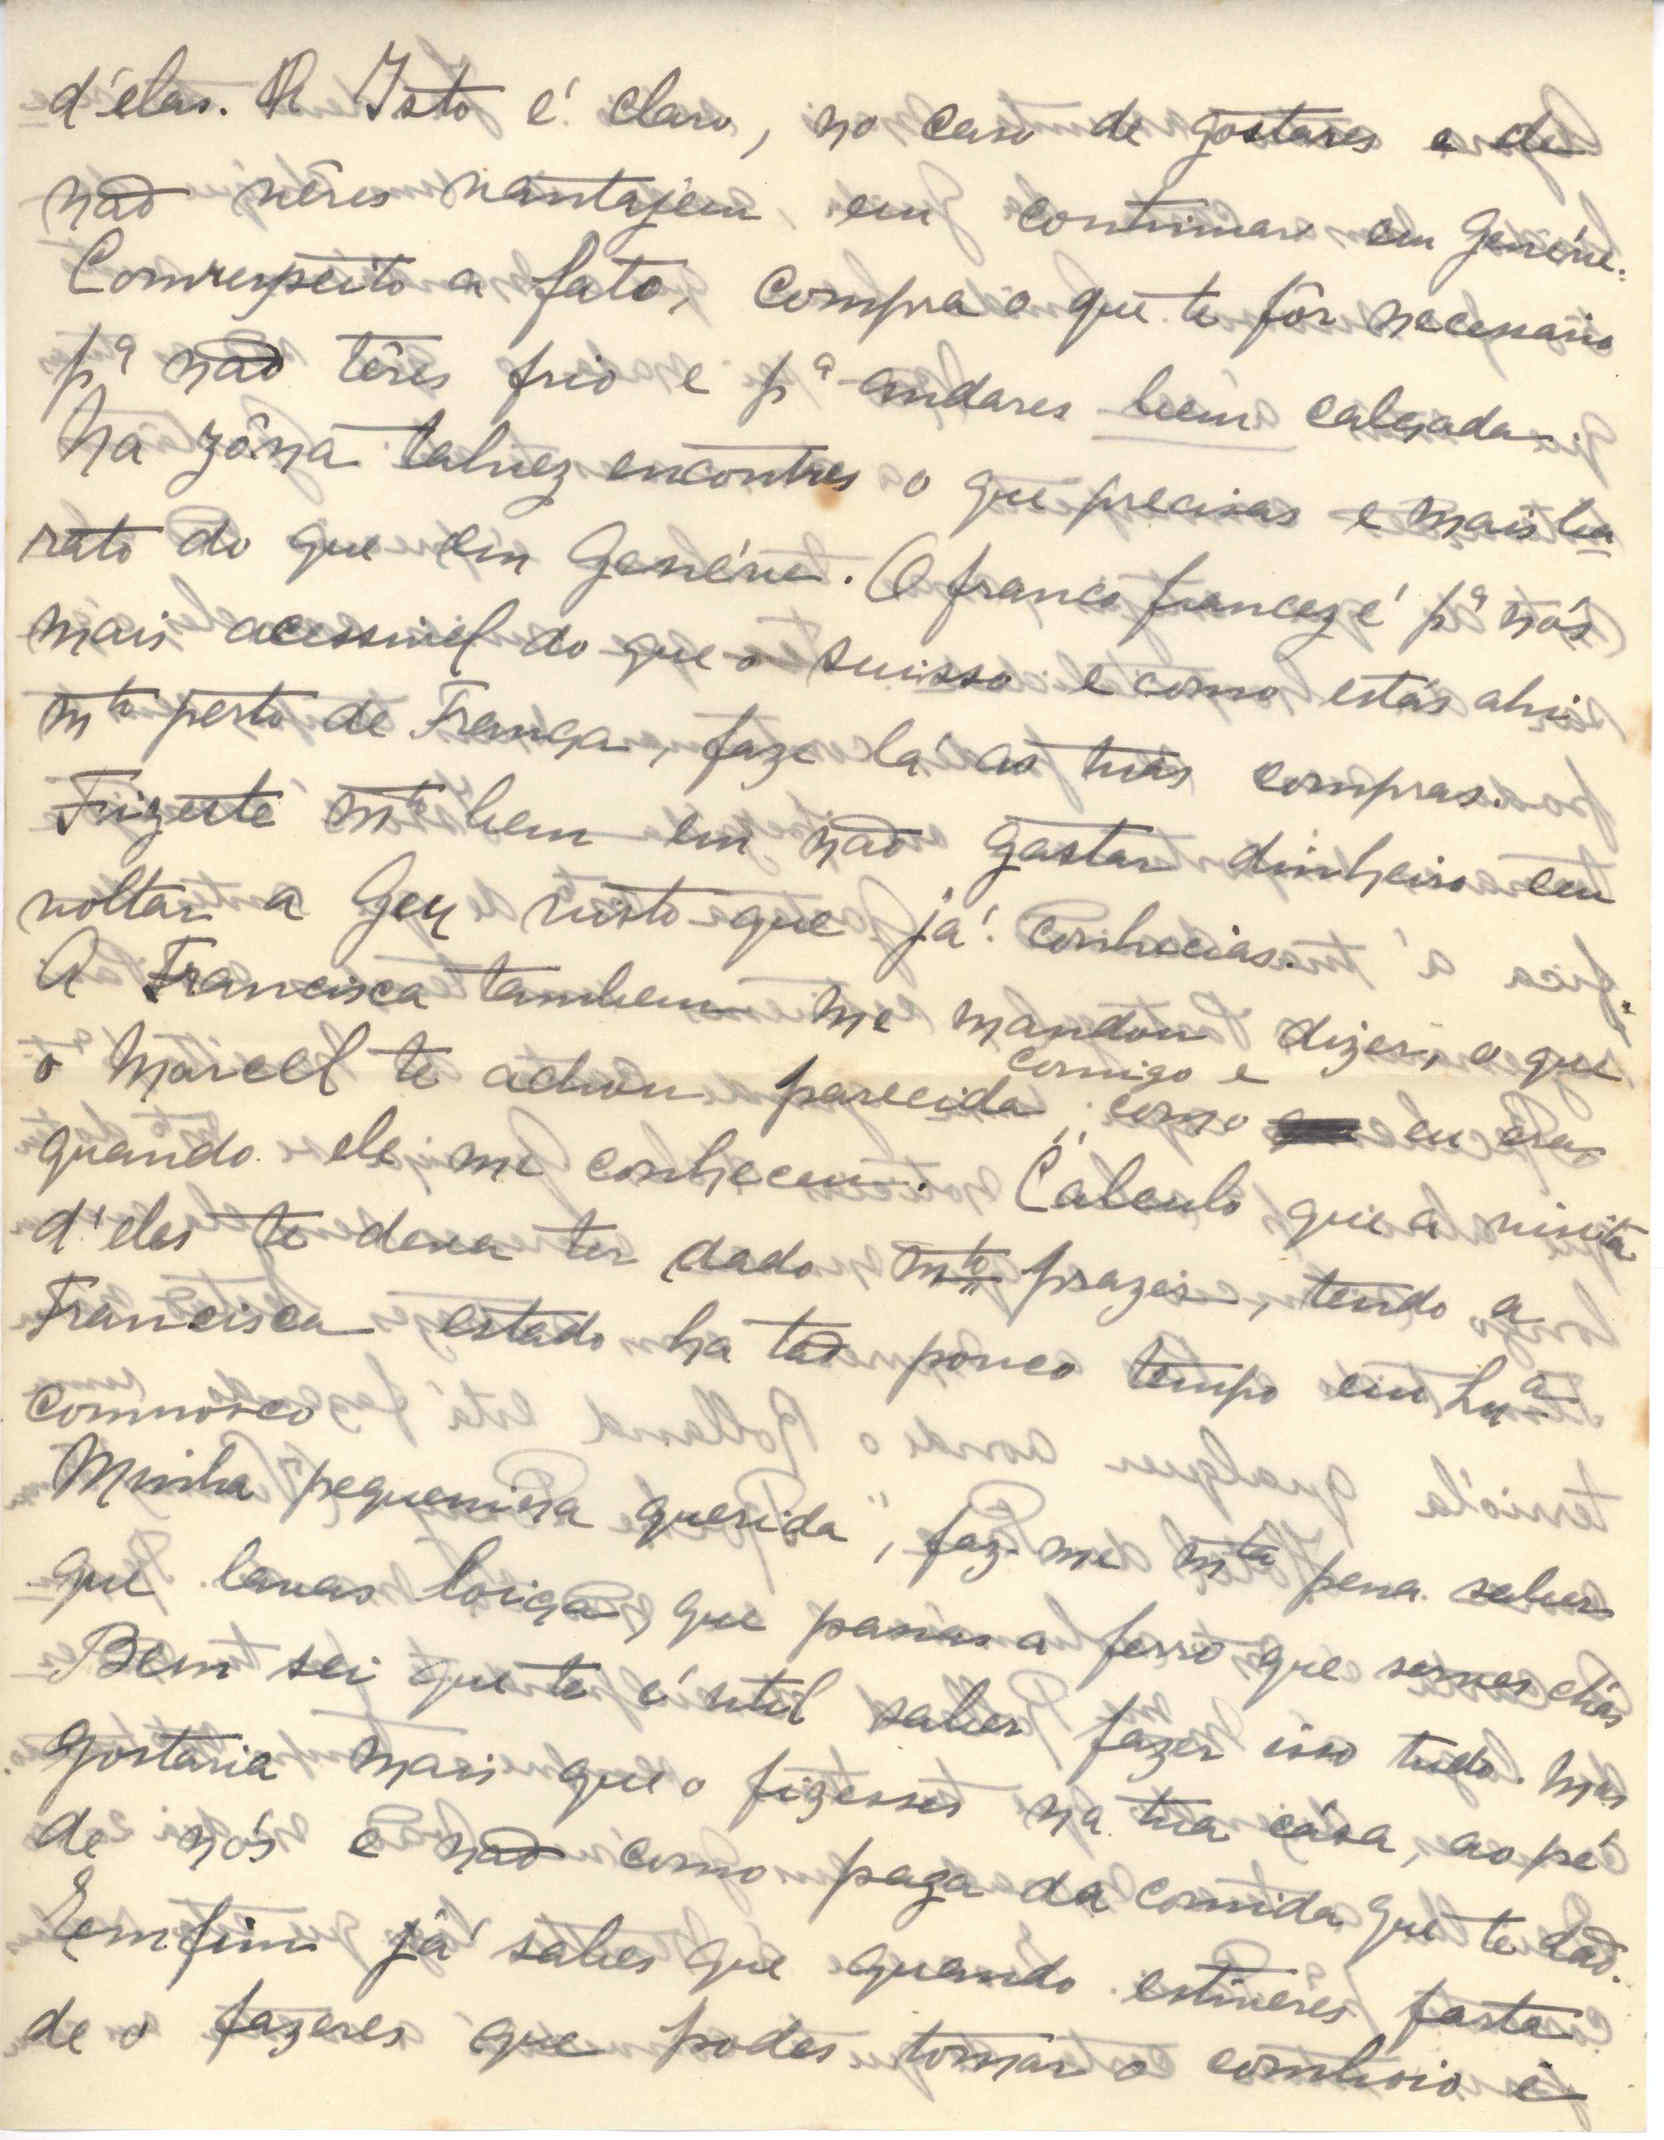 d'élas. Isto é claro, no caso de gostares e de
não vêres vantajem em continuar em Genéve.
Com respeito a fato, compra o que te fôr necessario
pª não têres frio e pª andares bem calçada.
Na zôna talvez encontres o que precisas e mais ba
rato do que em Genéve. O franco francez é pª nós
mais acessivel do que o suisso e como estás ahi
mto perto de França, faze lá as tuas compras.
Fizeste mto bem em não gastar dinheiro em
voltar a Gex visto que já conhecias.
A Francisca tambem me mandou dizer, o que
o Marcel te achou parecida comigo e como eu era,
quando ele me conheceu. Calculo que a visita
d'eles te deva ter dado mto prazer, tendo a
Francisca estado ha tão pouco tempo em Lxª
comnosco
Minha pequenina querida, faz-me mta pena saber
que lavas loiça, que passas a ferro que serves chás
Bem sei que te é util saber fazer isso tudo. Mas
gostaria mais que o fizesses na tua cása, ao pé
de nós e não como paga da comida que te dão.
Emfim já sabes que quando estiveres farta
de o fazeres que podes tomar o comboio e